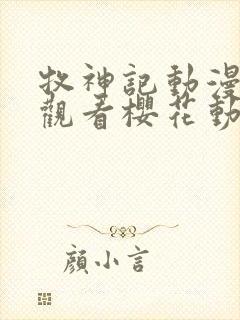 牧神記動漫
觀看櫻花動
顏小言